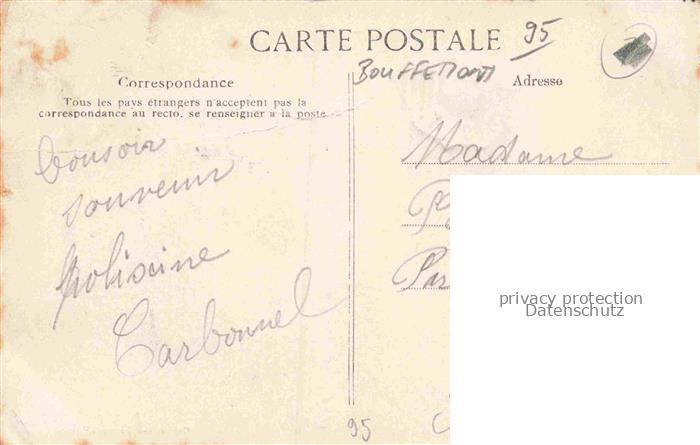 CARTE POSTALE
95
BOUFFEMONT
Correspondance
Adresse
Tous les pays étrangers n'acceptent pas la
correspondance au recto, se renseigner à la poste
bonsoir
souvenir
Carbonnel
Madame
privacy protection
Datenschutz
95